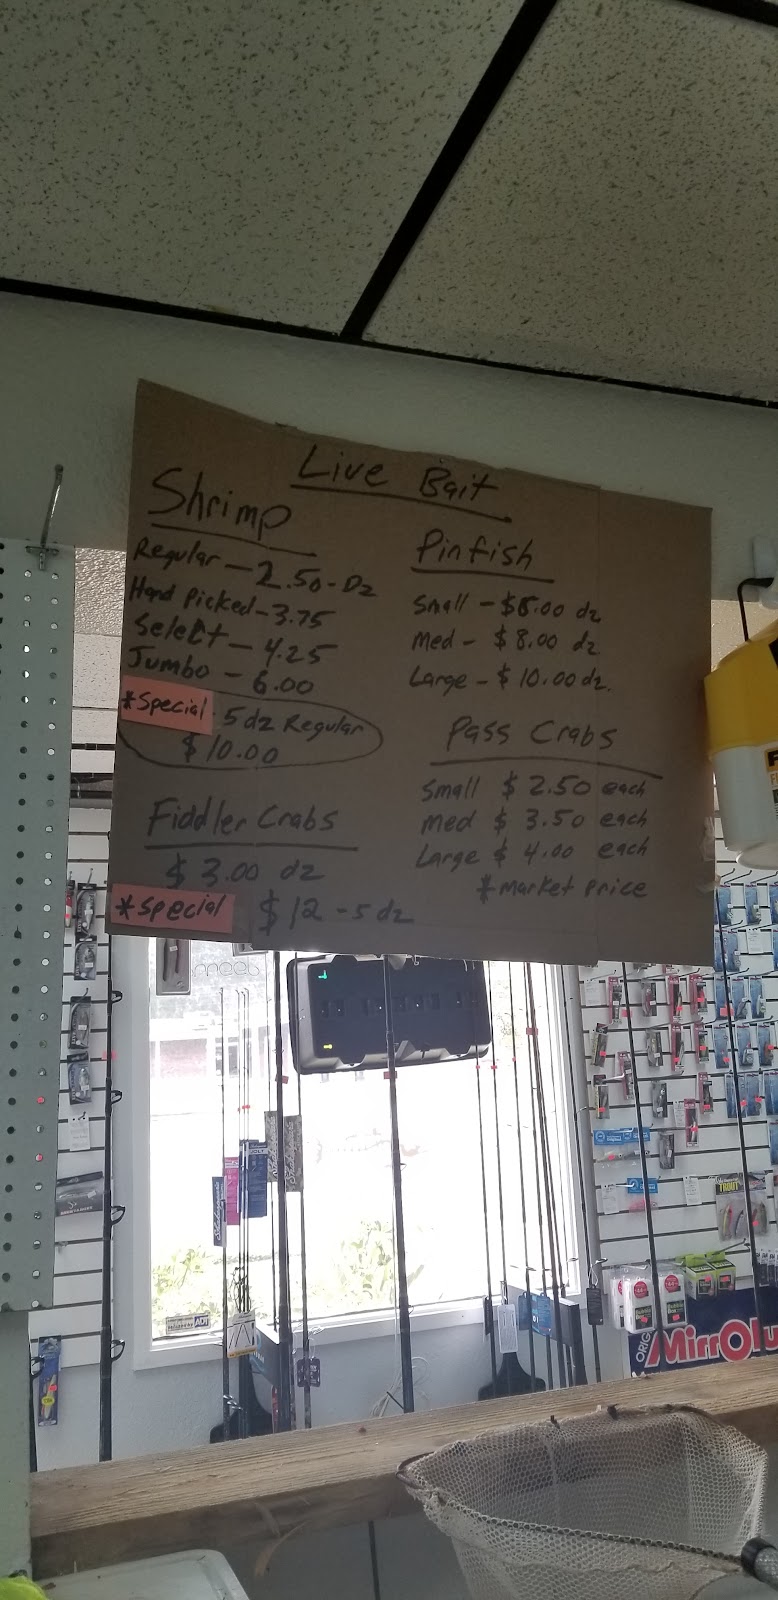 Live Bait
Shrimp
Regular - 2.50 - Dz
Hand Picked - 3.75
Select - 4.25
Jumbo - 6.00
*Special 5 dz Regular
$10.00
Fiddler Crabs
$3.00 dz
*Special $12 - 5 dz
Pinfish
Small - $ dz
Med - $8.00 dz
Large - $10.00 dz.
Pass Crabs
Small $2.50 each
med $3.50 each
Large $4.00 each
*market price
TROUT
ADT
MirrOlu